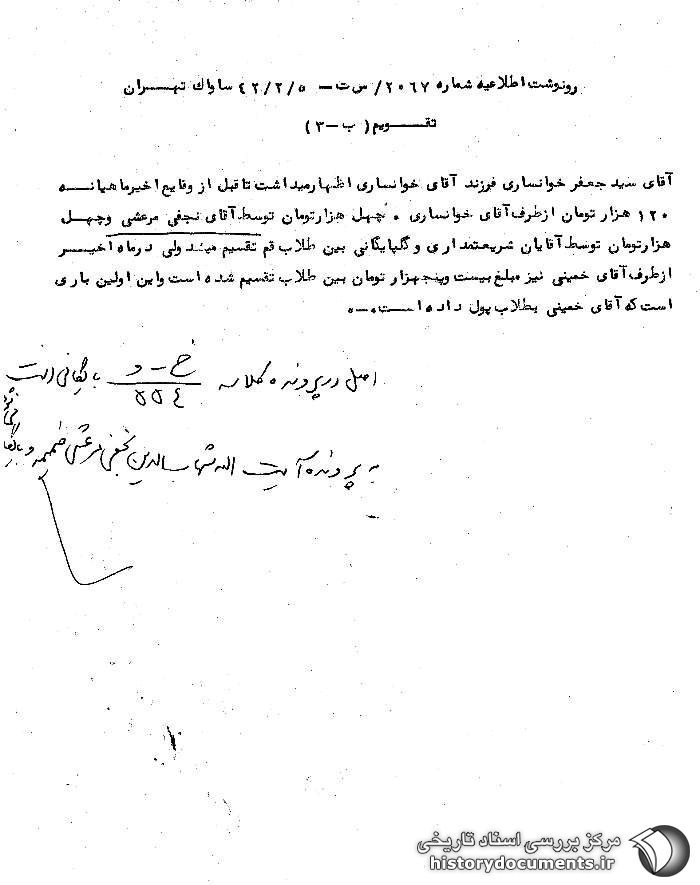 رونوشت اطلاعیه شماره ۲۰۶۷/ س ت – ۴۲/۲/۵ ساواک تهران
تقویم ( ب – ۳ )
آقای سید جعفر خوانساری فرزند آقای خوانساری اظهار میداشت تا قبل از وقایع اخیر ماهیانه
۱۲۰ هزار تومان از طرف آقای خوانساری . چهل هزار تومان توسط آقای نجفی مرعشی و چهل
هزار تومان توسط آقایان شریعتمداری و گلپایگانی بین طلاب قم تقسیم میشد ولی در ماه اخیر
از طرف آقای خمینی نیز مبلغ بیست و پنجهزار تومان بین طلاب تقسیم شده است و این اولین باری
است که آقای خمینی بطلاب پول داده است .–.
اصل در پرونده کلاسه خ – و / ۵۵۴ بایگانی است
به پرونده آیت اله شهاب الدین نجفی مرعشی ضمیمه و
مرکز بررسی اسناد تاریخی
historydocuments.ir